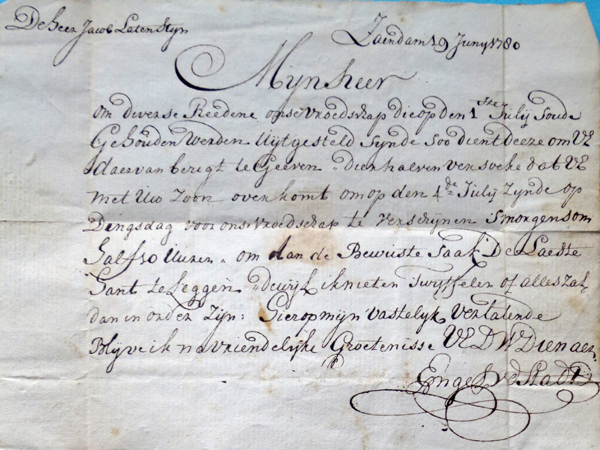 De heer Jacob Latensteyn
Zaendam 19 Juny 1780
Mijn heer
om diverse Reedene onse vroedschap die op den 1ste Julij Soude
Gehouden Werden Uijtgesteld Synde Soo dient deeze om UE
daer van berigt te Geeven dierhalven versoeke dat UE
met Uw Zoon over komt om op den 4de July Zynde op
Dengsdag voor ons vroedschap te verschynen Smorgens om
half 10 Uuren om aan de Bewuste Saak De Laeste
hant te Leggen dewijl ik nieten twyffelen of alles Zal
dan in orden Zijn: hier op mijn vastelyk verlatende
Blyve ik na vriendelijke Groetenisse UED W Dienaer
Engel vd Stadt